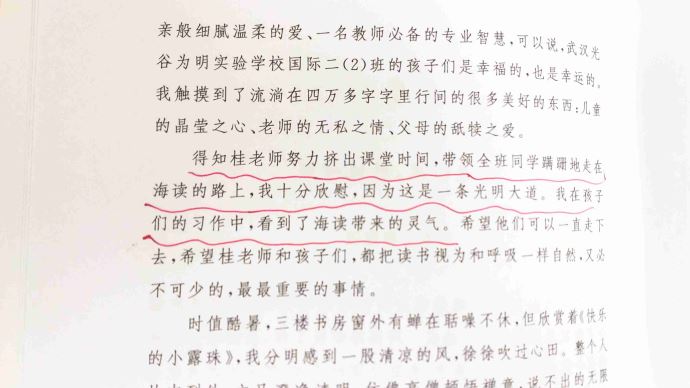 亲般细腻温柔的爱、一名教师必备的专业智慧，可以说，武汉光
谷为明实验学校国际二(2)班的孩子们是幸福的，也是幸运的。
我触摸到了流淌在四万多字字里行间的很多美好的东西：儿童
的晶莹之心、老师的无私之情、父母的舐犊之爱。
得知桂老师努力挤出课堂时间，带领全班同学蹒跚地走在
海读的路上，我十分欣慰，因为这是一条光明大道。我在孩子
们的习作中，看到了海读带来的灵气。希望他们可以一直走下
去，希望桂老师和孩子们，都把读书视为和呼吸一样自然，又必
不可少的，最最重要的事情。
时值酷暑，三楼书房窗外有蝉在聒噪不休，但欣赏着《快乐
的小露珠》，我分明感到一股清凉的风，徐徐吹过心田。整个人